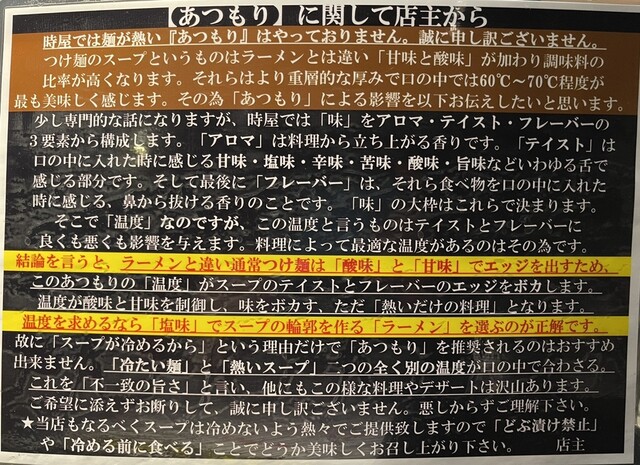 【あつもり】に関して店主から
時屋では麺が熱い『あつもり』はやっておりません。誠に申し訳ございません。
つけ麺のスープというものはラーメンとは違い「甘味と酸味」が加わり調味料の
比率が高くなります。それらはより重層的な厚みで口の中では60℃～70℃程度が
最も美味しく感じます。その為「あつもり」による影響を以下お伝えしたいと思います。
少し専門的な話になりますが、時屋では「味」をアロマ・テイスト・フレーバーの
3要素から構成します。「アロマ」は料理から立ち上がる香りです。「テイスト」は
口の中に入れた時に感じる甘味・塩味・辛味・苦味・酸味・旨味などいわゆる舌で
感じる部分です。そして最後に「フレーバー」は、それら食べ物を口の中に入れた
時に感じる、鼻から抜ける香りのことです。「味」の大枠はこれらで決まります。
そこで「温度」なのですが、この温度と言うものはテイストとフレーバーに
良くも悪くも影響を与えます。料理によって最適な温度があるのはその為です。
結論を言うと、ラーメンと違い通常つけ麺は「酸味」と「甘味」でエッジを出すため、
このあつもりの「温度」がスープのテイストとフレーバーのエッジをボカします。
温度が酸味と甘味を制御し、味をボカす、ただ「熱いだけの料理」となります。
温度を求めるなら「塩味」でスープの輪郭を作る「ラーメン」を選ぶのが正解です。
故に「スープが冷めるから」という理由だけで「あつもり」を推奨されるのはおすすめ
出来ません。「冷たい麺」と「熱いスープ」二つの全く別の温度が口の中で合わさる。
これを「不一致の旨さ」と言い、他にもこの様な料理やデザートは沢山あります。
ご希望に添えずお断りして、誠に申し訳ございません。悪しからずご理解下さい。
★当店もなるべくスープは冷めないよう熱々でご提供致しますので「どぶ漬け禁止」
や「冷める前に食べる」ことでどうか美味しくお召し上がり下さい。 店主